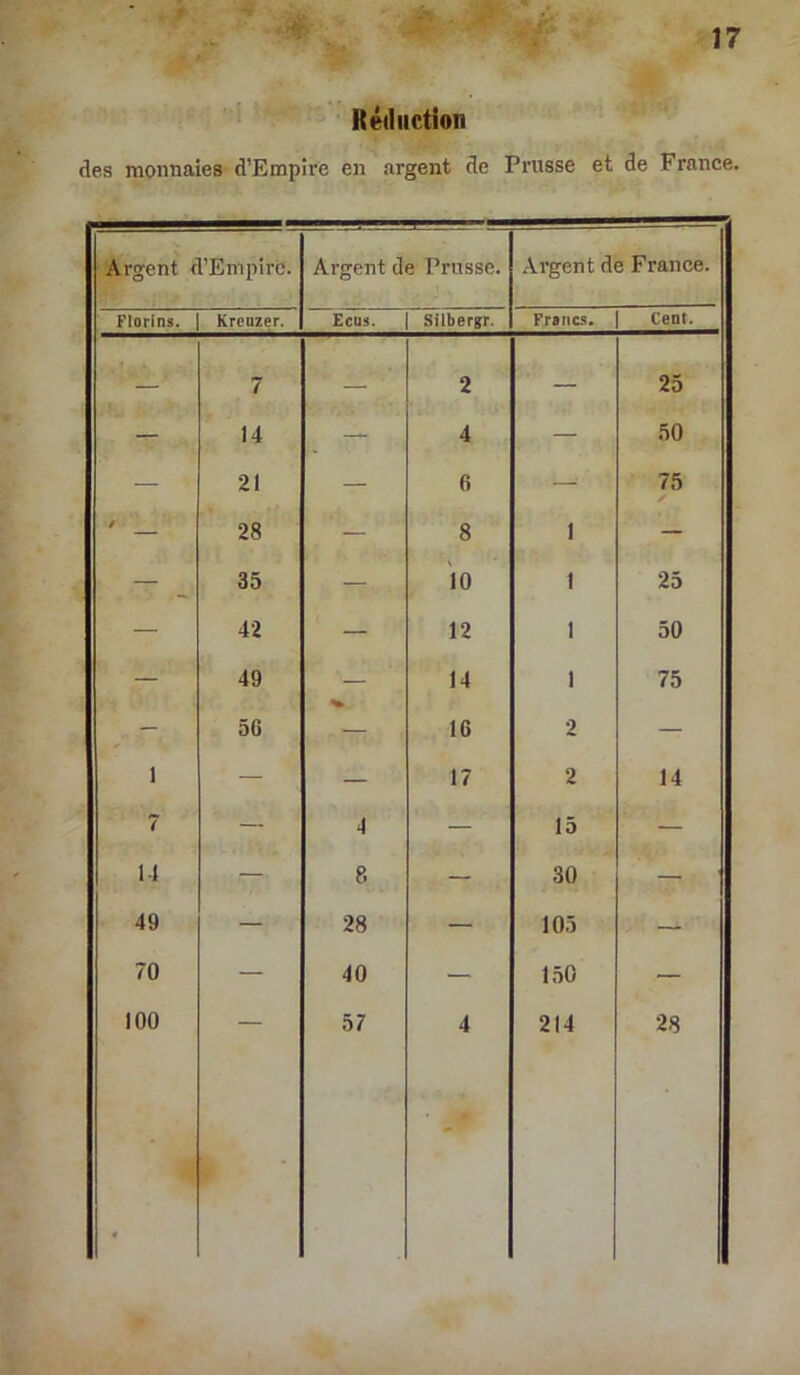 17
Réduction
des monnaies d'Empire en argent de Prusse et de France.
Argent d'Empire. Argent de Prusse. Argent de France.
Florins. Kreuzer. Ecus. Silbergr. Francs. Cent.
— 7 — 2 — 25
— 14 — 4 — 50
— 21 — 6 — 75
— 28 — 8 1 —
— 35 — 10 1 25
— 42 — 12 1 50
— 49 — 14 1 75
— 56 — 16 2 —
1 — — 17 2 14
7 — 4 — 15 —
14 — 8 — 30 —
49 — 28 — 105 —
70 — 40 — 150 —
100 — 57 4 214 28